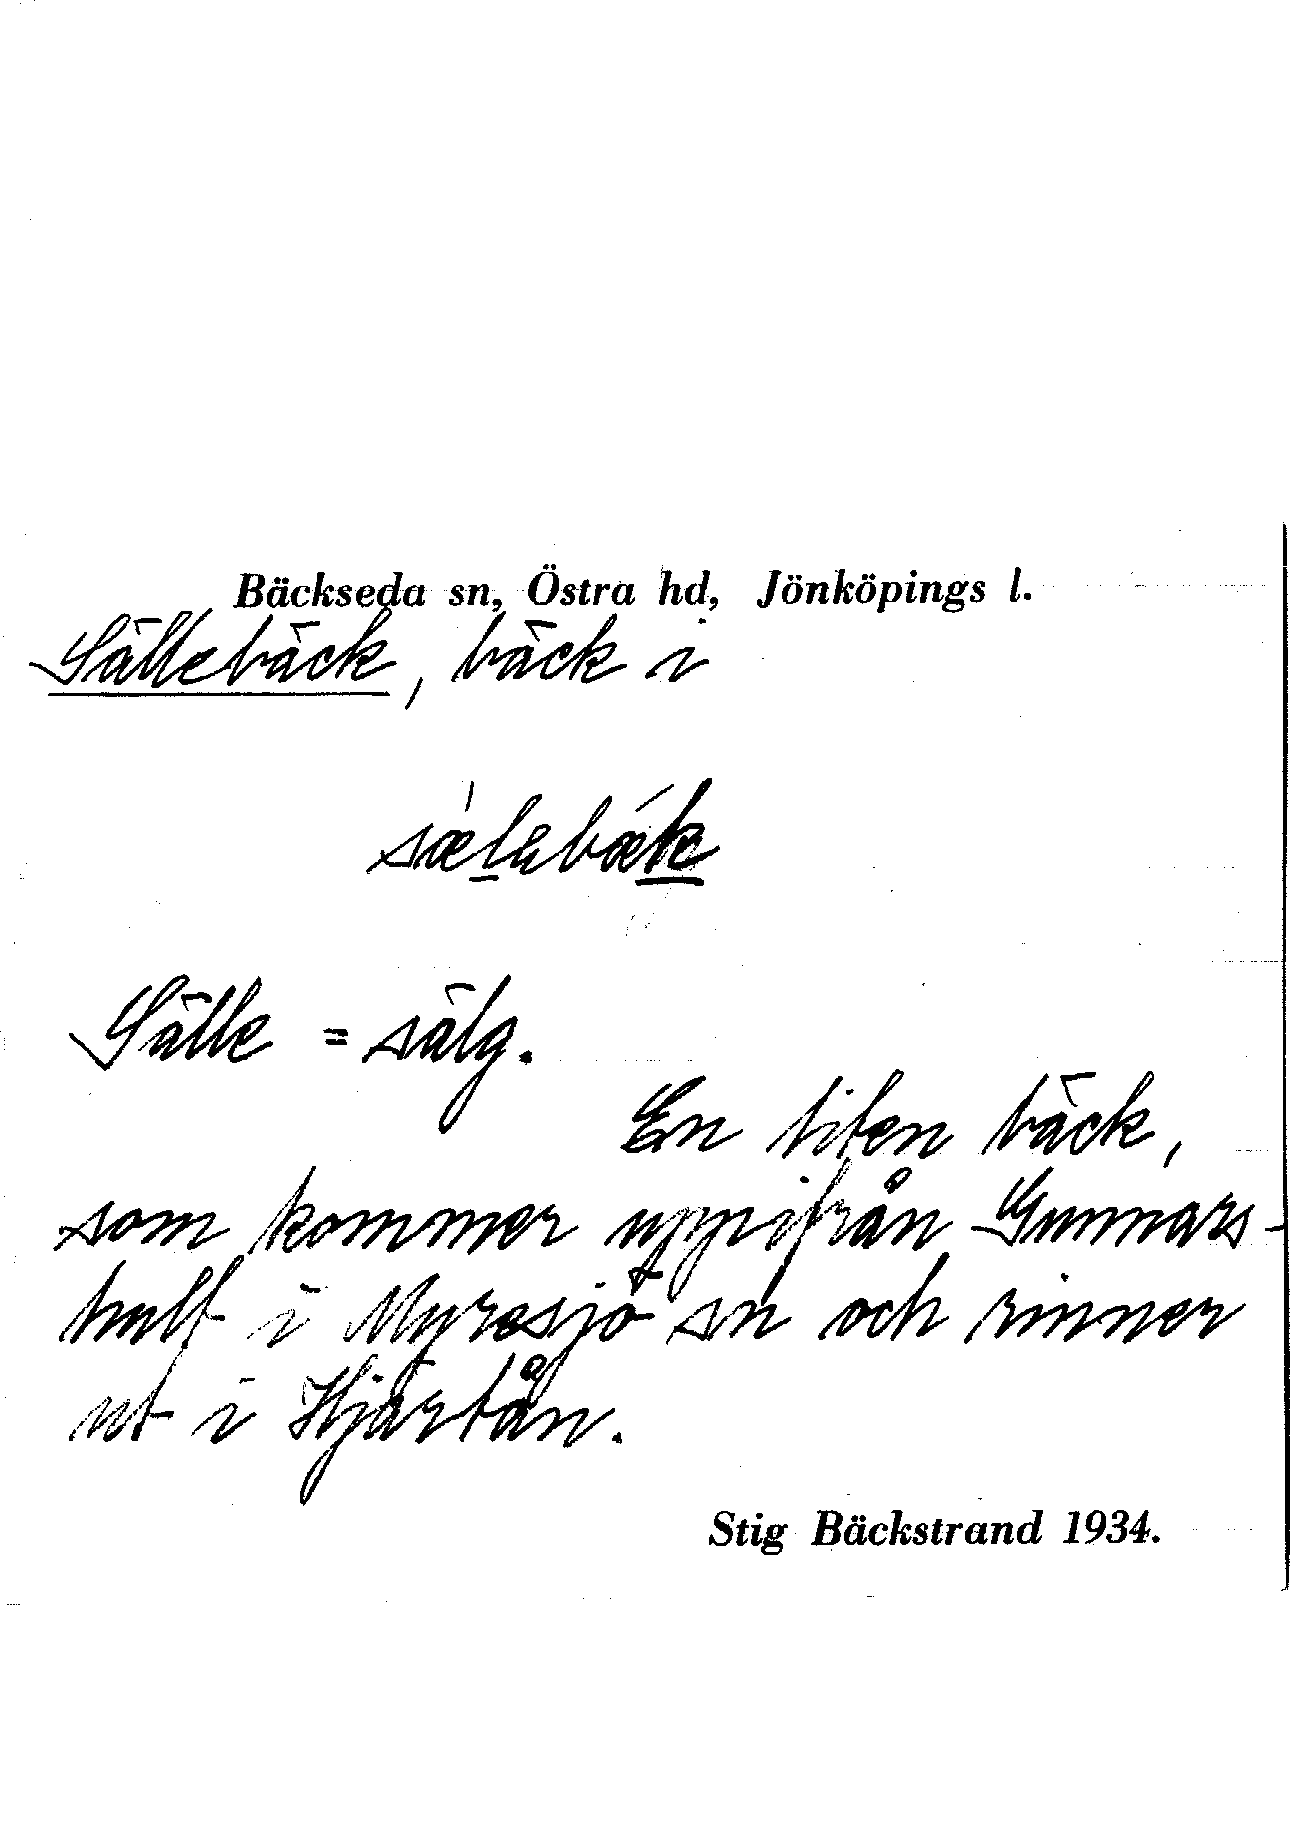 Bäckseda sn, Östra hd, Jönköpings l.
Sällebäck, bäck i
Sälle = sälg.
En liten bäck,
som kommer uppifrån Gunnars-
hult i Myresjö sn och rinner
ut i Hjärtån.
Stig Bäckstrand 1934.